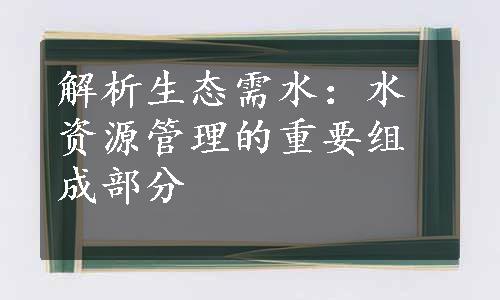 解析生态需水：水
资源管理的重要组
成部分